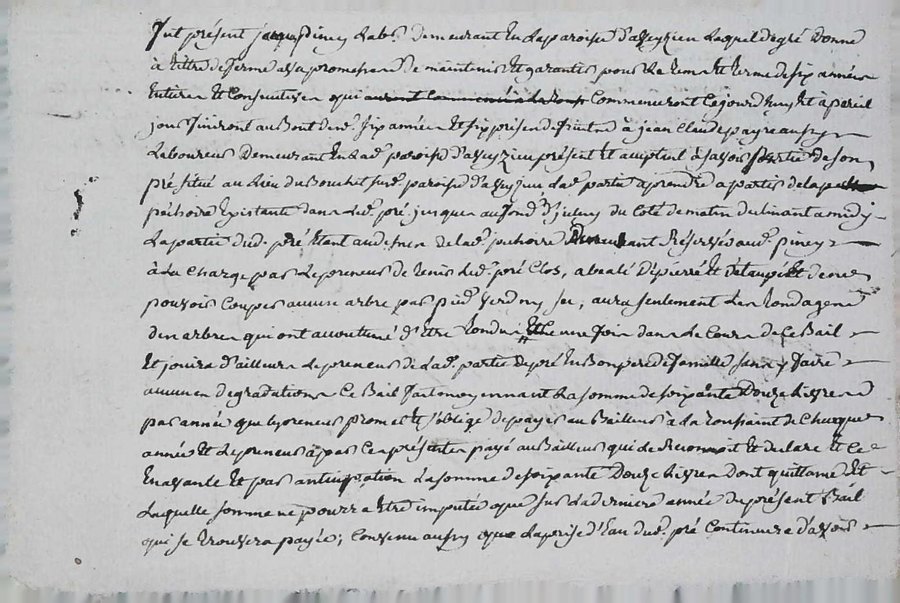 fut présent jacques piney Lab.r demeurant En La paroisse d'aveyzieu Lequel de gré Donne
à titre de ferme avec promesse De maintenir Et garantir pour Le tems Et terme de six années
Entieres Et Consecutives qui auront Commencées Le Jour Commenceront Cejourd'huy Et à pareil
jour finiront au Bout desd. six années Et six prises à jean Claude payre aussy
Laboureur Demeurant En Lad. paroisse d'aveyzieu présent Et acceptant à savoir partie de son
pré situé au Lieu du Bouchet sud. paroisse d'aveyzieu Lad. partie a prendre a partir de la
péchoire Existante dans Led. pré jusques au fond d'iceluy du Coté de matin declinant a midy
La partie dud. pré Etant audessus de lad. péchoire Demeurant Réservée aud. piney
à La Charge par Le preneur de tenir Led. pré Clos, abealé Dépierré Et d'étaupé Et de ne
pouvoir Couper aucun arbre par pied verd ny sec, aura seulement Les tondages
des arbres qui ont accoutumé d'Etre tondus Et une fois dans Le Cours de Ce Bail
Et jouira d'ailleurs Le preneur de Lad. partie de pré En Bon pere de famille sans y faire
aucunes degradations Ce Bail fait moyennant La somme de soixante Douze Livres
par année que Le preneur promet Et s'oblige de payer au Bailleur à La toussaint de Chacque
année Et Le preneur a par Ces présentes payé au Bailleur qui de Reconnoit Et declare Et Ce
En avance Et par anticipation La somme de soixante Douze Livres Dont quittance Et
Laquelle somme ne pourra Etre imputée que sur La derniere année du présent Bail
qui se trouvera payée; Convenu aussy que La prise d'Eau dud. pré Continuera d'avoir